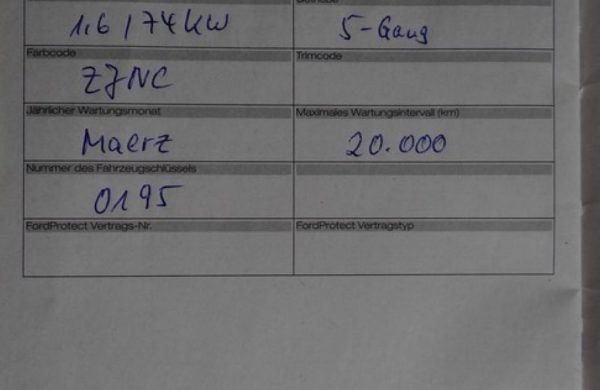 Getriebe
1,6 / 74 KW
5-Gang
Farbcode
Trimcode
ZJNC
Jährlicher Wartungsmonat
Maximales Wartungsintervall (km)
Maerz
20.000
Nummer des Fahrzeugschlüssels
0195
FordProtect Vertrags-Nr.
FordProtect Vertragstyp